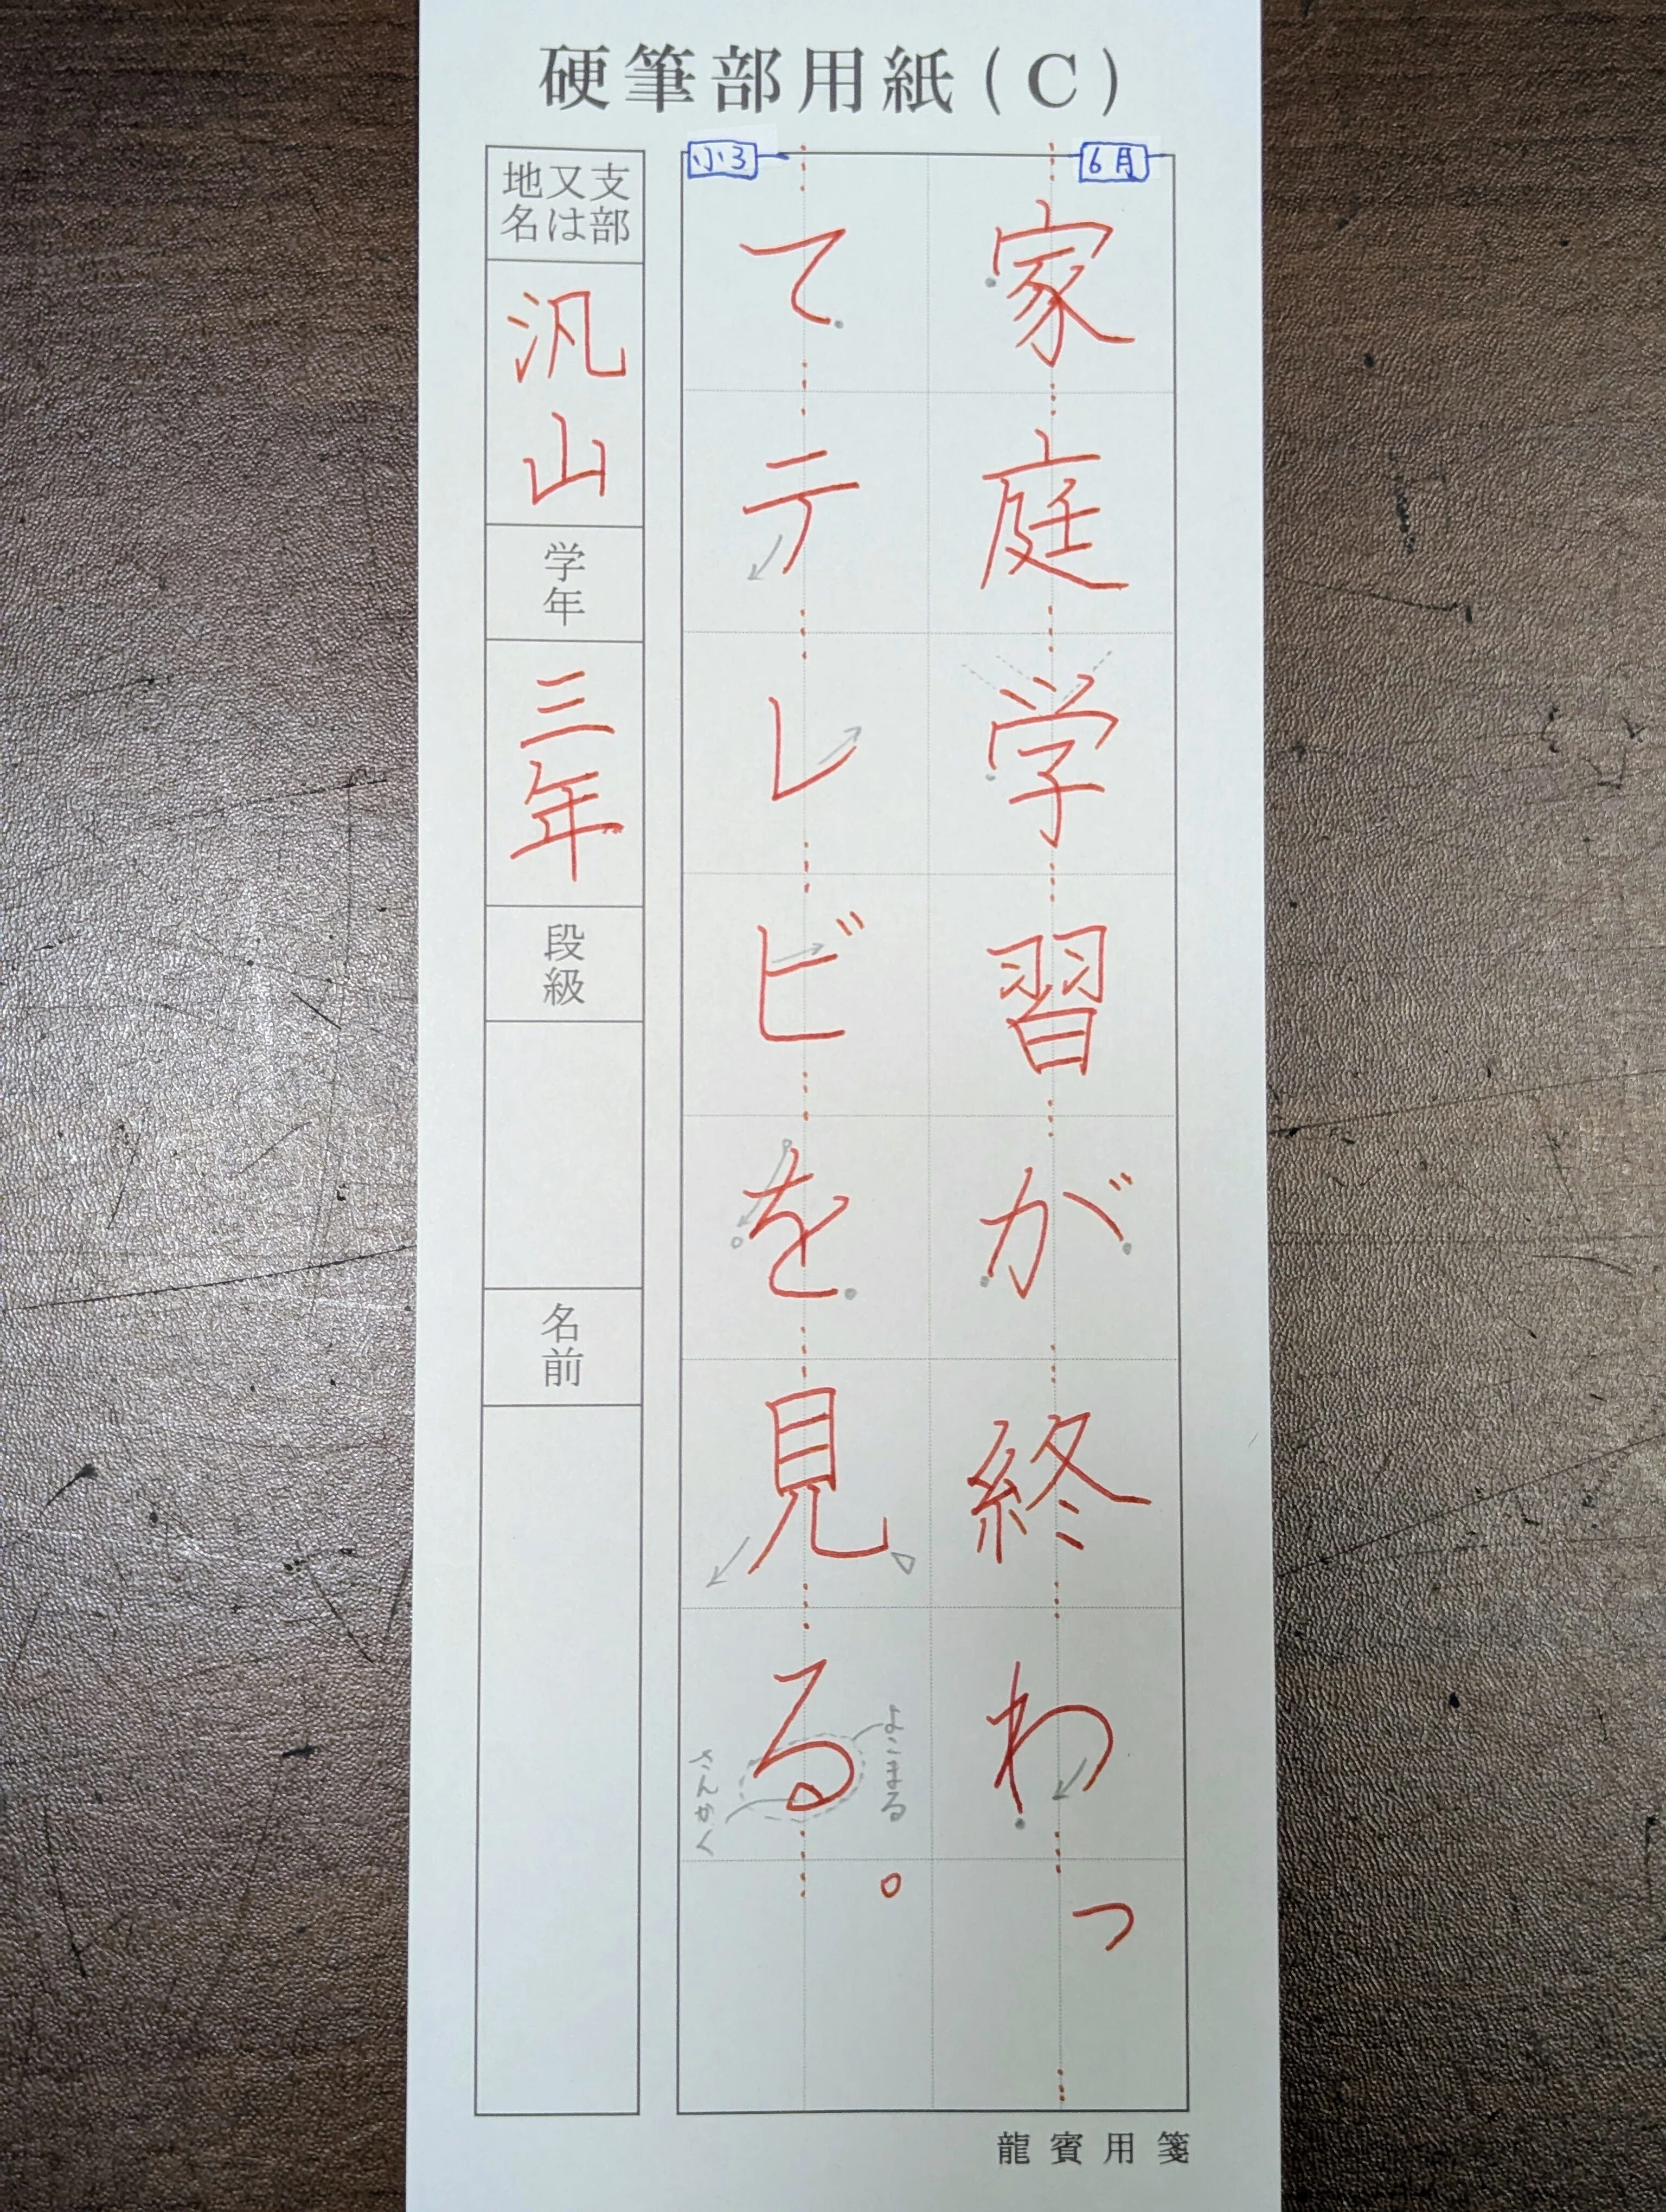 硬筆部用紙(C)
6月
家庭学習が終わっ
小3
てテレビを見る。
よこまる
さんかく
支部又は地名
汎山
学年
三年
段級
名前
龍賓用箋